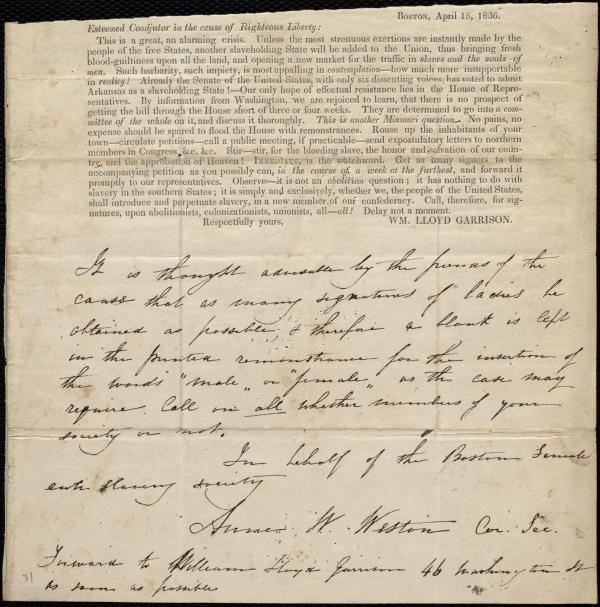 BOSTON, April 18, 1836.
Esteemed Coadjutor in the cause of Righteous Liberty:
This is a great, an alarming crisis. Unless the most strenuous exertions are instantly made by the
people of the free States, another slaveholding State will be added to the Union, thus bringing fresh
blood-guiltiness upon all the land, and opening a new market for the traffic in slaves and the souls of
men. Such barbarity, such impiety, is most appalling in contemplation—how much more insupportable
in reality! Already the Senate of the United States, with only six dissenting voices, has voted to admit
Arkansas as a slaveholding State!—Our only hope of effectual resistance lies in the House of Repre-
sentatives. By information from Washington, we are rejoiced to learn, that there is no prospect of
getting the bill through the House short of three or four weeks. They are determined to go into a com-
mittee of the whole on it, and discuss it thoroughly. This is another Missouri question. No pains, no
expense should be spared to flood the House with remonstrances. Rouse up the inhabitants of your
town—circulate petitions—call a public meeting, if practicable—send expostulatory letters to northern
members in Congress, &c. &c. Stir—stir, for the bleeding slave, the honor and salvation of our coun-
try, and the approbation of Heaven! DESPATCH, is the watchword. Get as many signers to the
accompanying petition as you possibly can, in the course of a week at the furthest, and forward it
promptly to our representatives. Observe—it is not an abolition question; it has nothing to do with
slavery in the southern States; it is simply and exclusively, whether we, the people of the United States,
shall introduce and perpetuate slavery, in a new member of our confederacy. Call, therefore, for sig-
natures, upon abolitionists, colonizationists, unionists, all—all! Delay not a moment.
Respectfully yours, WM. LLOYD GARRISON.
It is thought advisable by the friends of the
cause that as many signatures of ladies be
obtained as possible & therefore a blank is left
in the printed remonstrance for the insertion of
the words "male" or "female" as the case may
require. Call on all whether members of your
society or not.
In behalf of the Boston Female
anti slavery society
Anne W. Weston Cor. Sec.
Forward to William Lloyd Garrison 46 Washington St
as soon as possible
31